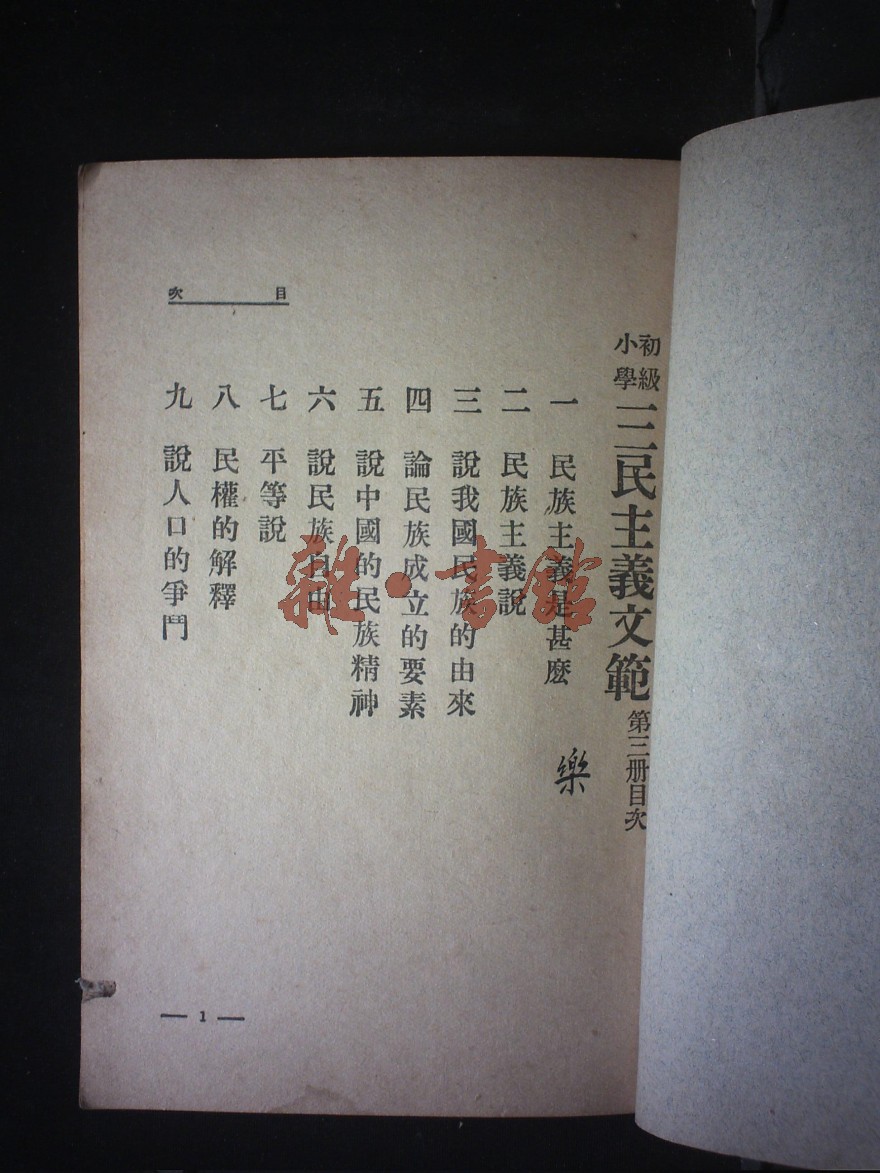 初級小學三民主義文範第三册目次
一 民族主義是甚麽
樂
二 民族主義說
三 說我國民族的由來
四 論民族成立的要素
五 說中國的民族精神
六 說民族自由
七 平等說
八 民權的解釋
九 說人口的爭鬥
目次
— 1 —
雜·書館